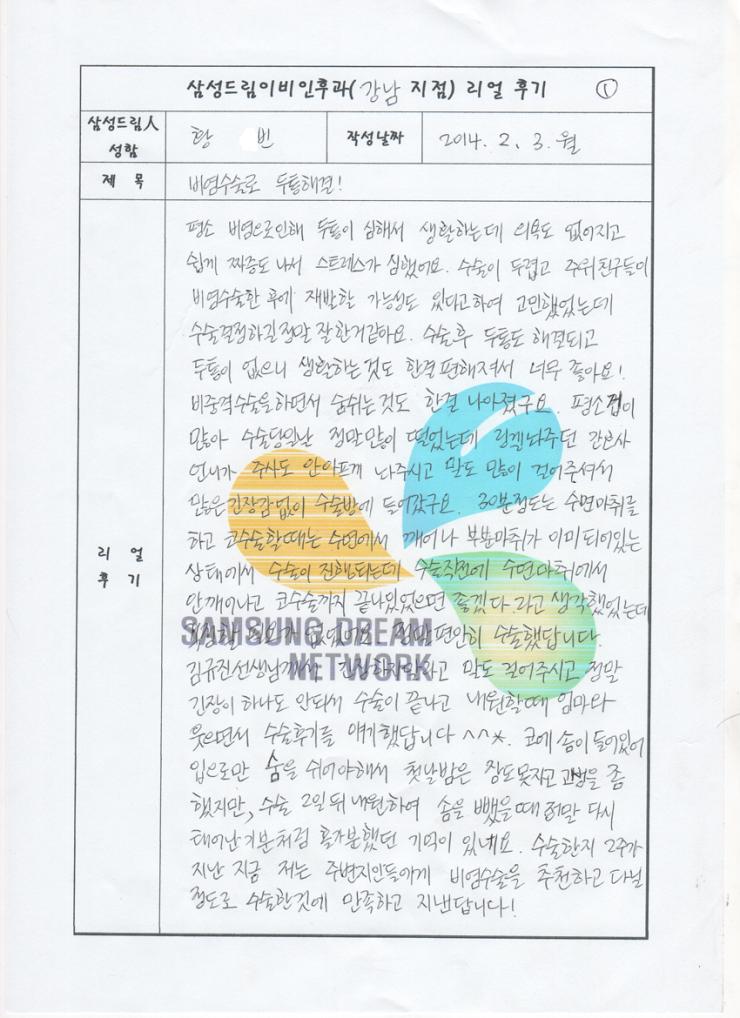 삼성드림이비인후과(강남 지점) 리얼 후기 ①
삼성드림人 성함
황 빈
작성날짜
2014. 2. 3. 월
제 목
비염수술로 두통해결!
리 얼 후 기
평소 비염으로인해 두통이 심해서 생활하는데 의욕도 없어지고
쉽게 짜증도 나서 스트레스가 심했어요. 수술이 두렵고 주위친구들이
비염수술한 후에 재발할 가능성도 있다고하여 고민했었는데
수술결정하길 정말 잘한거같아요. 수술후 두통도 해결되고
두통이 없으니 생활하는것도 한결 편해져서 너무 좋아요!
비중격수술을하면서 숨쉬는것도 한결 나아졌구요. 평소겁이
많아 수술당일날 정말많이 떨었는데 링겔놔주던 간호사
언니가 주사도 안아프게 놔주시고 말도 많이 걸어주셔서
많은긴장감없이 수술방에 들어갔구요. 30분정도는 수면마취를
하고 코수술할때는 수면에서 깨어나 부분마취가 이미되어있는
상태에서 수술이 진행되는데 수술직전에 수면마취에서
안깨어나고 코수술까지 끝나있었으면 좋겠다 라고 생각했었는데
없었어요. 정말편안히 수술했답니다.
SAMSUNG DREAM
NETWORK
김규진선생님께서 긴장하지말라고 말도 걸어주시고 정말
긴장이 하나도 안되서 수술이 끝나고 내원할때 엄마와
웃으면서 수술후기를 얘기했답니다 ^^*. 코에 솜이들어있어
입으로만 숨을 쉬어야해서 첫날밤은 잠도못자고 고생을 좀
했지만, 수술 2일뒤 내원하여 솜을 뺐을때 정말 다시
태어난기분처럼 홀가분했던 기억이 있네요. 수술한지 2주가
지난 지금 저는 주변지인들에게 비염수술을 추천하고 다닐
정도로 수술한것에 만족하고 지낸답니다!